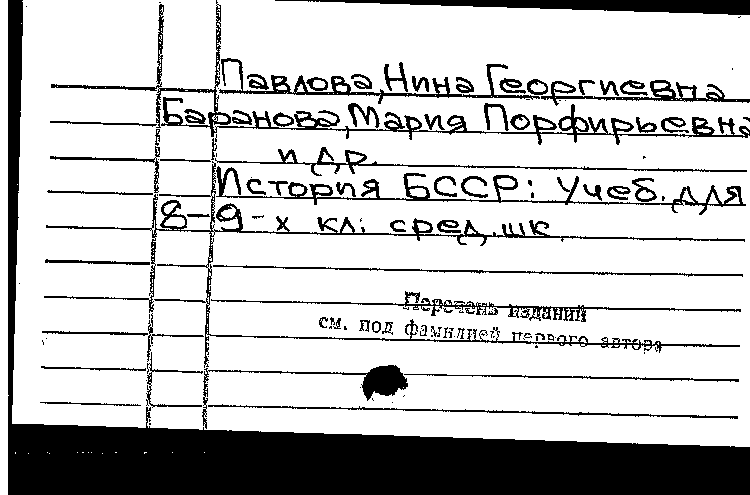 Павлова, Нина Георгиевна
Баранова, Мария Порфирьевна
и др.
История БССР: Учеб. для
8-9-х кл. сред. шк.
Перечень изданий
см. под фамилией первого автора